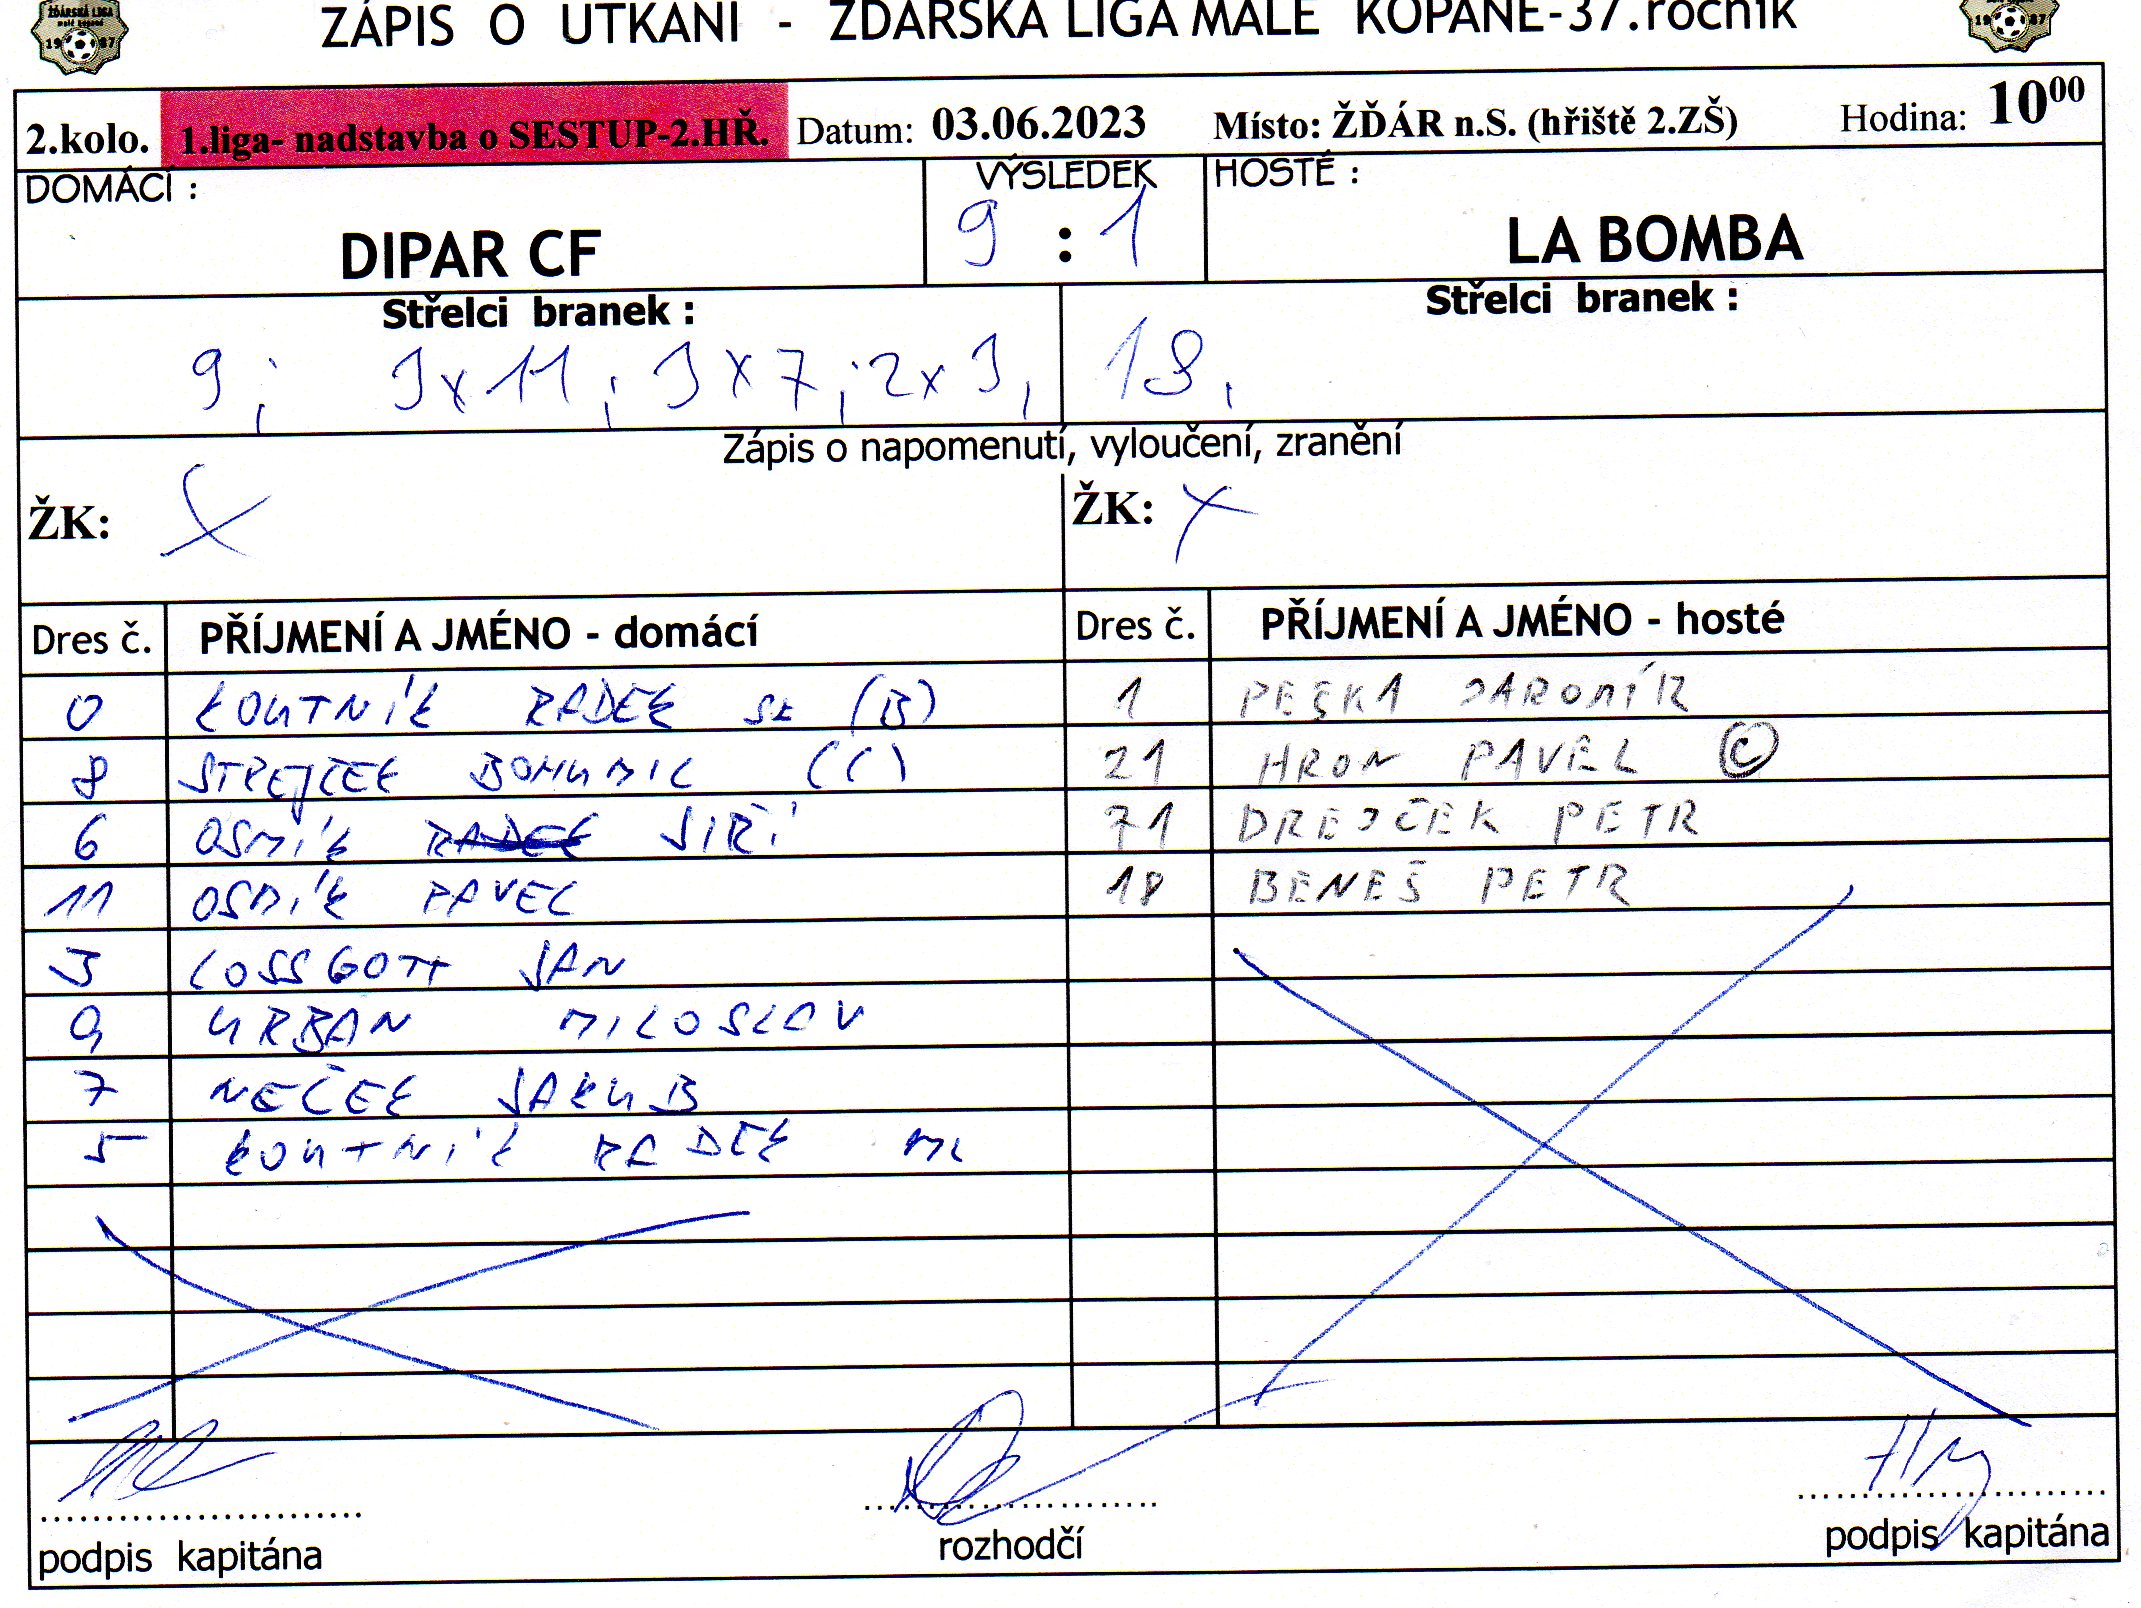 ŽĎÁRSKÁ LIGA
malé kopané
19 87
ZÁPIS O UTKÁNÍ - ŽĎÁRSKÁ LIGA MALÉ KOPANÉ-37.ročník
19 87
2.kolo. 1.liga- nadstavba o SESTUP-2.HŘ. Datum: 03.06.2023 Místo: ŽĎÁR n.S. (hřiště 2.ZŠ) Hodina: 10⁰⁰
DOMÁCÍ : VÝSLEDEK HOSTÉ :
DIPAR CF 9 : 1 LA BOMBA
Střelci branek : Střelci branek :
9; 3x11; 3x7; 2x3, 18,
Zápis o napomenutí, vyloučení, zranění
ŽK: X ŽK: X
Dres č. PŘÍJMENÍ A JMÉNO - domácí Dres č. PŘÍJMENÍ A JMÉNO - hosté
0 KOUTNÍK RADEK ST (B) 1 PEŠKA JAROMÍR
8 STREJČEK BOHUMIL (C) 21 HRON PAVEL ©
6 OSMÍK RADEK JIŘÍ 71 DREJČEK PETR
11 OSMÍK PAVEL 18 BENEŠ PETR
3 LOSSGOTT JAN
9 URBAN MILOSLAV
7 NEČEK JAKUB
5 KOUTNÍK RADEK ML
podpis kapitána rozhodčí podpis kapitána